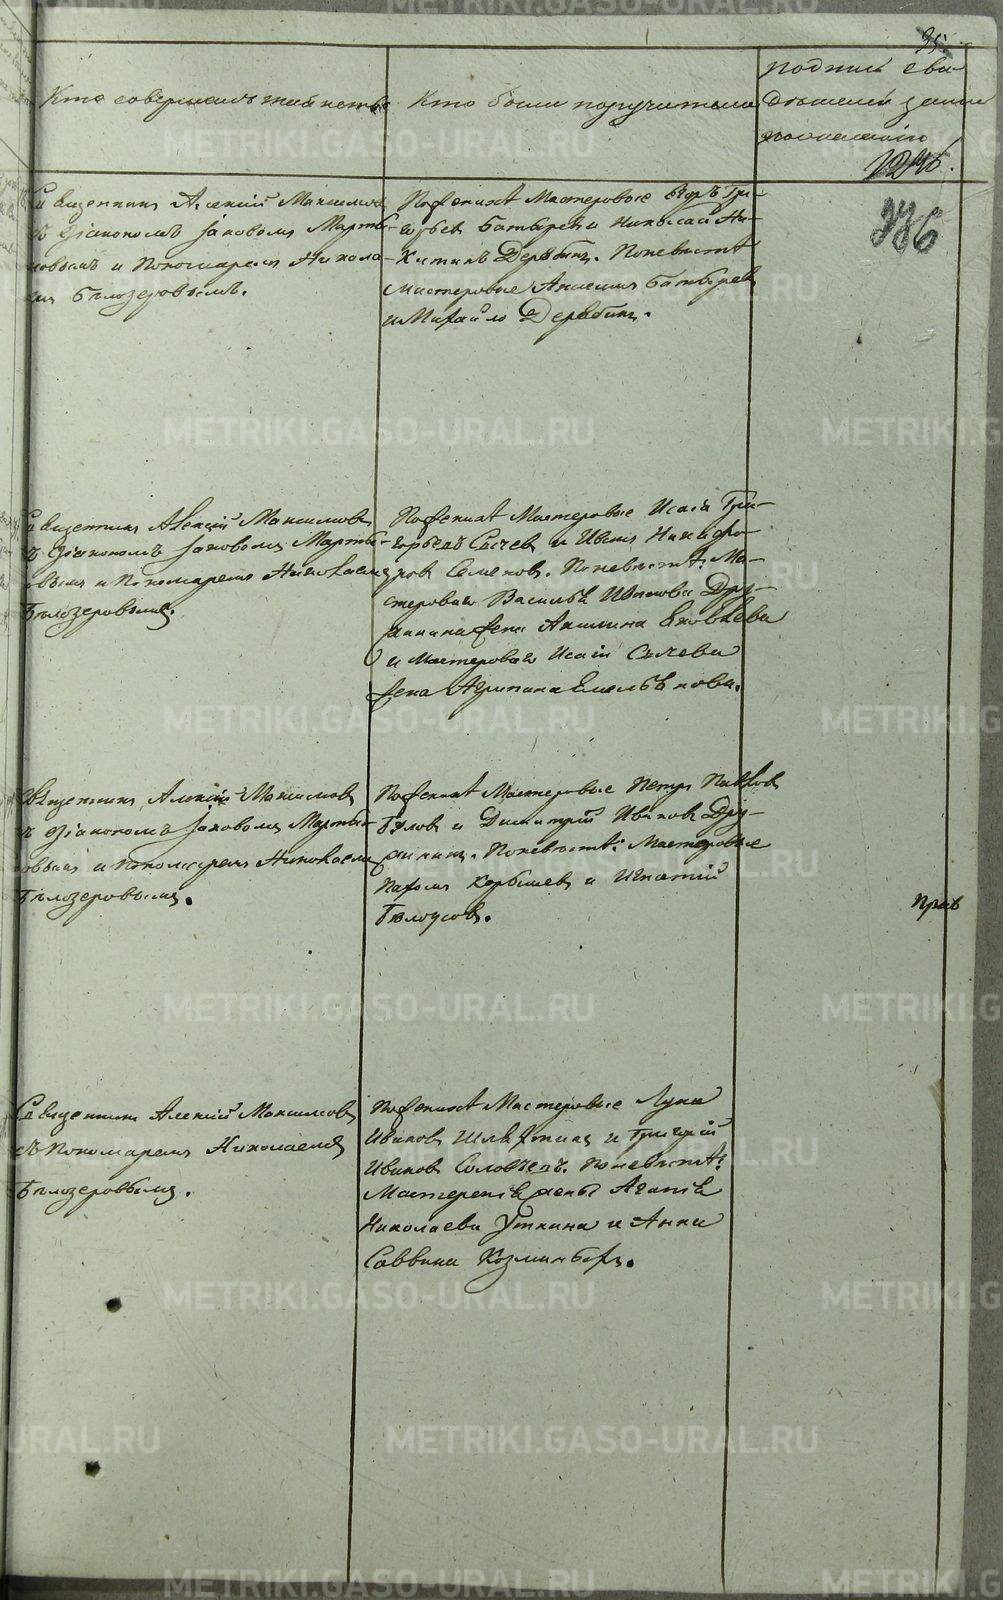 35.
Кто совершалъ таинство
Кто были поручители
подпись сви
дѣтелей записи
по желанію
1246.
776
Священникъ Алексій Максимовъ
съ Діакономъ Іаковомъ Марты-
новымъ и Пономаремъ Никола-
емъ Бѣлозеровымъ.
По женихѣ Мастеровые Егоръ Гри-
горьевъ Батыревъ и Николай Ни-
китинъ Дерябинъ. По невѣстѣ
мастеровые Анисимъ Батыревъ
и Михайло Дерябинъ.
Священникъ Алексій Максимовъ
съ Діакономъ Іаковомъ Марты-
новымъ и Пономаремъ Николаемъ
Бѣлозеровымъ.
По женихѣ Мастеровые Исай Гри-
горьевъ Сычевъ и Иванъ Никифо-
ровъ Семеновъ. По невѣстѣ: Ма-
стероваго Василья Иванова Дру-
жинина жена Акилина Яковлева
и Мастероваго Исаія Сычева
жена Агрипина Емельянова.
Священникъ Алексій Максимовъ
съ Діакономъ Іаковомъ Марты-
новымъ и Пономаремъ Николаемъ
Бѣлозеровымъ.
По женихѣ Мастеровые Петръ Павловъ
Бѣловъ и Димитрій Ивановъ Дру-
жининъ. По невѣстѣ: Мастеровые
Пахомъ Корышевъ и Игнатій
Бѣлоусовъ.
Прав
Священникъ Алексій Максимовъ
съ Пономаремъ Николаемъ
Бѣлозеровымъ.
По женихѣ Мастеровые Лука
Ивановъ и Григорій
Ивановъ Соловьевъ. По невѣстѣ:
Мастерскія жены Агапія
Николаева Уткина и Анна
Саввина Козминыхъ.
METRIKI.GASO-URAL.RU